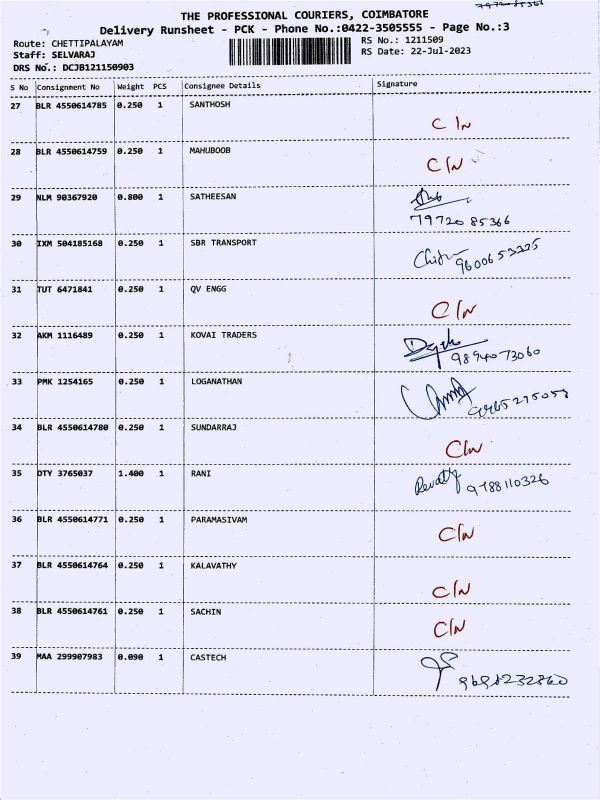 THE PROFESSIONAL COURIERS, COIMBATORE
Delivery Runsheet - PCK - Phone No.:0422-3505555 - Page No.:3
Route: CHETTIPALAYAM
RS No.: 1211509
Staff: SELVARAJ
RS Date: 22-Jul-2023
DRS No.: DCJB121150903
S No Consignment No Weight PCS Consignee Details Signature
27 BLR 4550614785 0.250 1 SANTHOSH
C/N
28 BLR 4550614759 0.250 1 MAHUBOOB
C/N
29 NLM 90367920 0.800 1 SATHEESAN
79720 85366
30 IXM 504185168 0.250 1 SBR TRANSPORT
9600653225
31 TUT 6471841 0.250 1 QV ENGG
C/N
32 AKM 1116489 0.250 1 KOVAI TRADERS
9894073060
33 PMK 1254165 0.250 1 LOGANATHAN
34 BLR 4550614780 0.250 1 SUNDARRAJ
C/N
35 OTY 3765037 1.400 1 RANI
Revathy 9788110326
36 BLR 4550614771 0.250 1 PARAMASIVAM
C/N
37 BLR 4550614764 0.250 1 KALAVATHY
C/N
38 BLR 4550614761 0.250 1 SACHIN
C/N
39 MAA 299907983 0.090 1 CASTECH